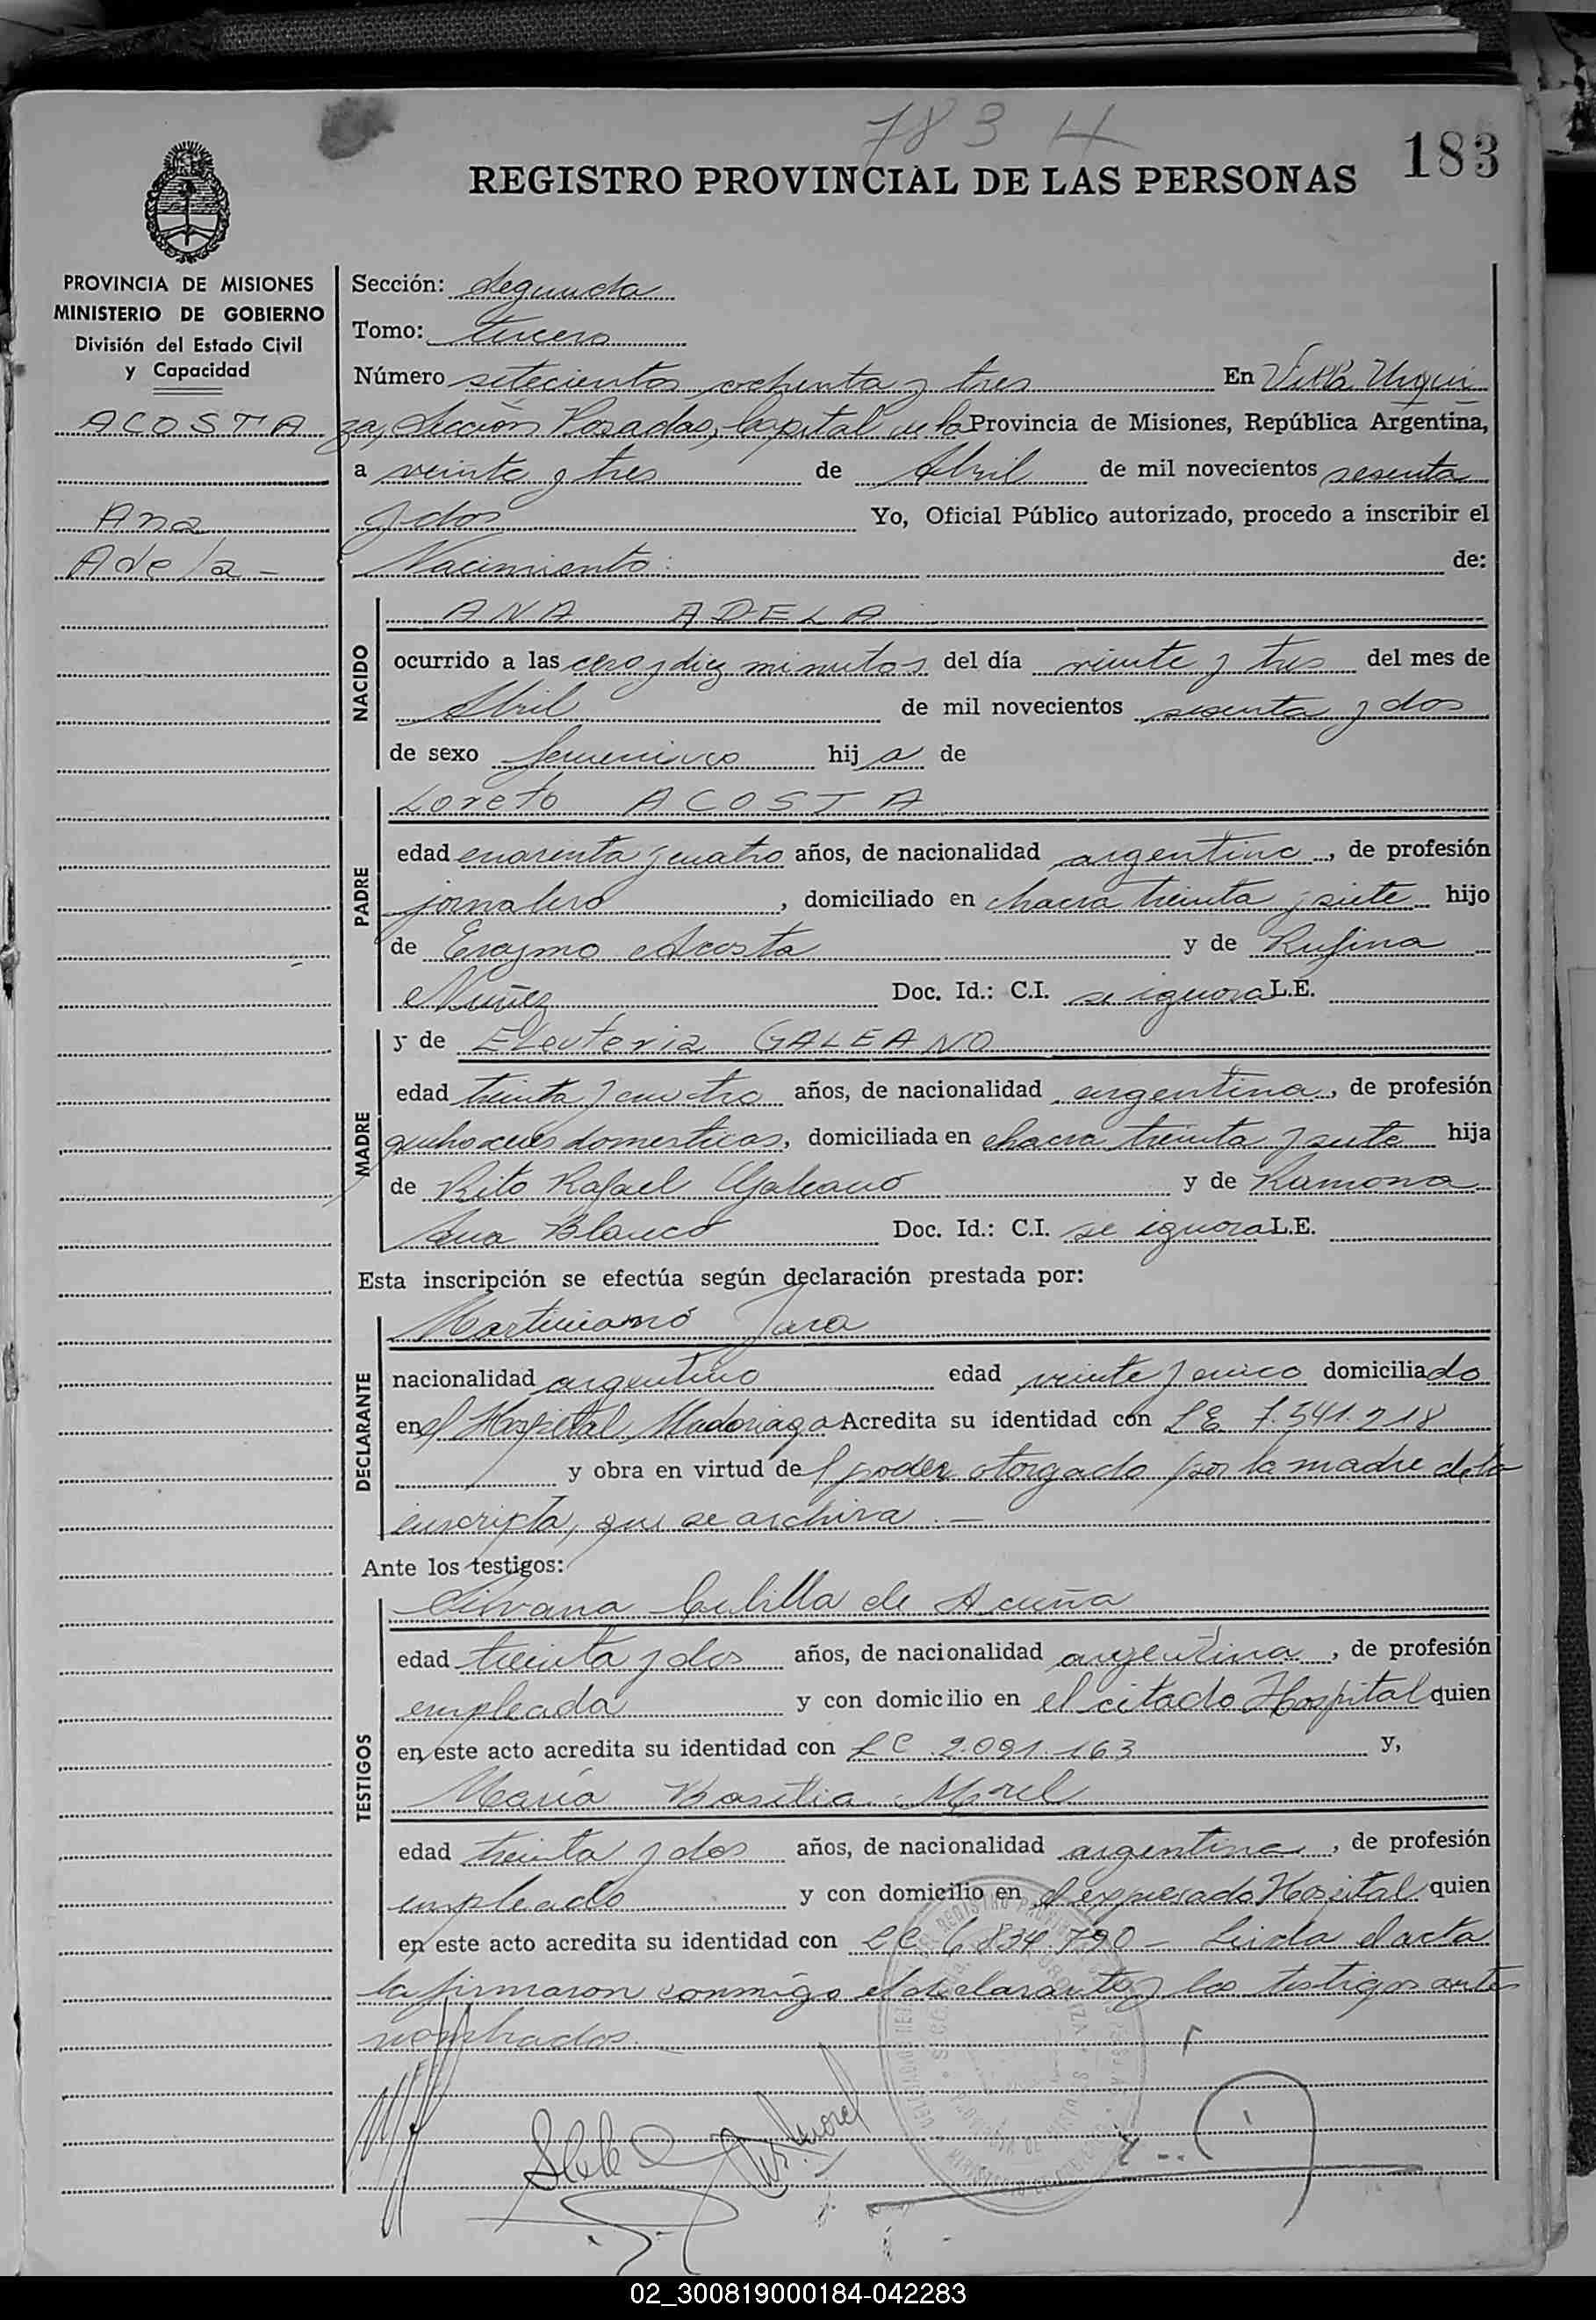 783 4
183
REGISTRO PROVINCIAL DE LAS PERSONAS
PROVINCIA DE MISIONES
MINISTERIO DE GOBIERNO
División del Estado Civil
y Capacidad
ACOSTA
Ana
Adela -
Sección: Segunda
Tomo: tercero
Número setecientos ochenta y tres En Villa Urqui
za, Sección Posadas, Capital de la Provincia de Misiones, República Argentina,
a veinte y tres de Abril de mil novecientos sesenta
y dos Yo, Oficial Público autorizado, procedo a inscribir el
Nacimiento: de:
NACIDO
ANA ADELA
ocurrido a las cero y diez minutos del día veinte y tres del mes de
Abril de mil novecientos sesenta y dos
de sexo femenino hija de
PADRE
Loreto ACOSTA
edad cuarenta y cuatro años, de nacionalidad argentino, de profesión
jornalero, domiciliado en chacra treinta y siete hijo
de Erasmo Acosta y de Rufina
Nuñez Doc. Id.: C.I. se ignora L.E.
MADRE
y de Eleuteria GALEANO
edad treinta y cuatro años, de nacionalidad argentina, de profesión
quehaceres domesticos, domiciliada en chacra treinta y siete hija
de Rito Rafael Galeano y de Ramona
Ana Blanco Doc. Id.: C.I. se ignora L.E.
Esta inscripción se efectúa según declaración prestada por:
DECLARANTE
Martiniano Jara
nacionalidad argentino edad veinte y cinco domiciliado
en el Hospital Madariaga Acredita su identidad con L E 7.541.218
y obra en virtud del poder otorgado por la madre de la
inscripta, que se archiva. —
Ante los testigos:
TESTIGOS
Silvana Cubilla de Acuña
edad treinta y dos años, de nacionalidad argentina, de profesión
empleada y con domicilio en el citado Hospital quien
en este acto acredita su identidad con L C 2.091.163 y,
María Basilia Morel
edad treinta y dos años, de nacionalidad argentina, de profesión
empleada y con domicilio en el expresado Hospital quien
en este acto acredita su identidad con L C 6.834.790 - Leida el acta
la firmaron conmigo el declarante y los testigos antes
nombrados.
Morel
02_300819000184-042283